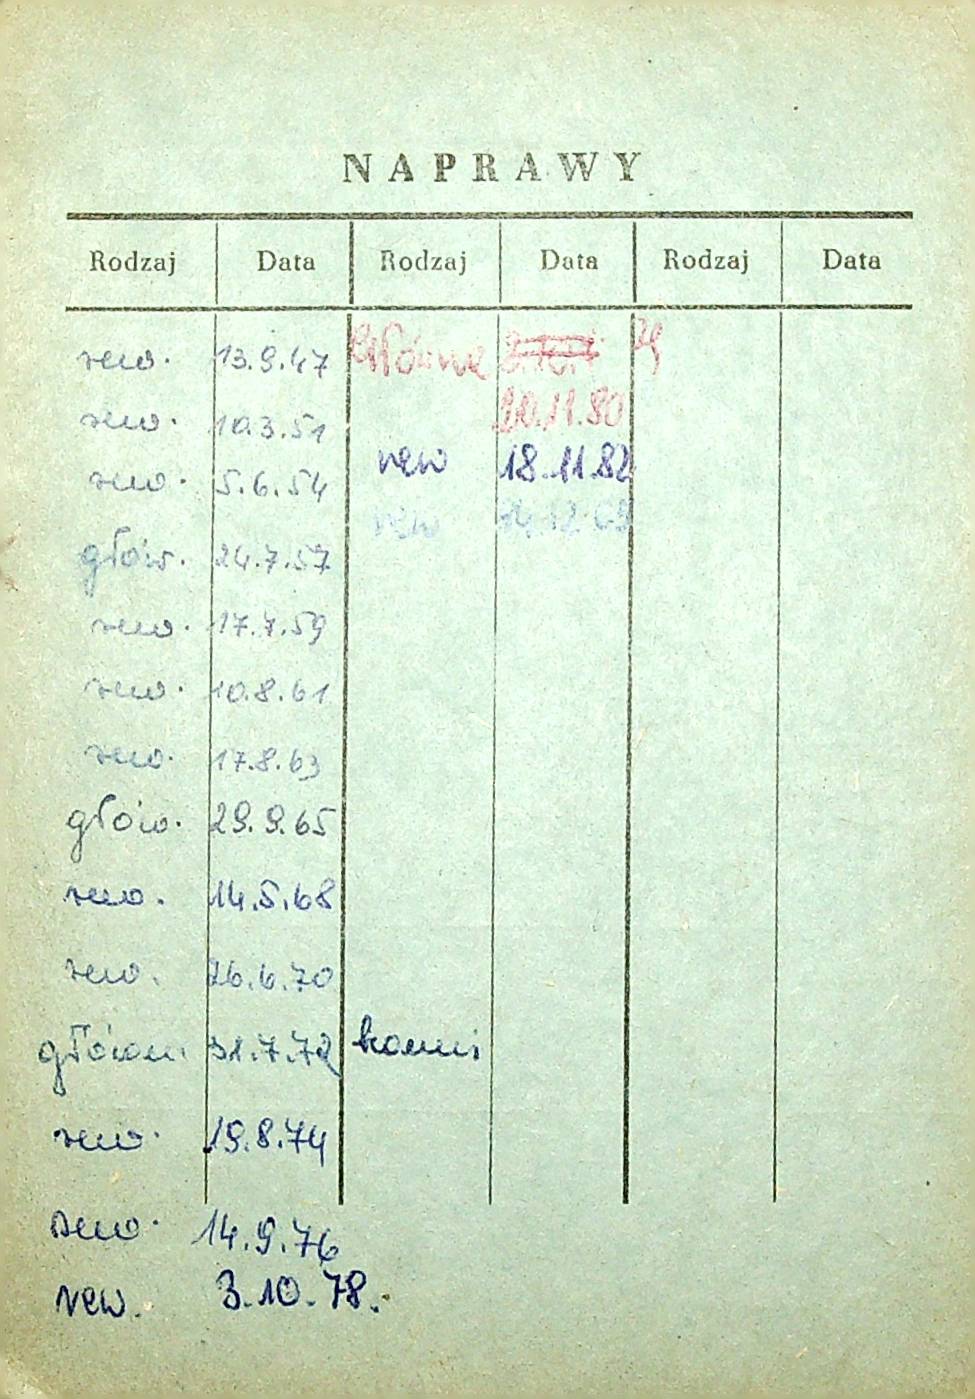 NAPRAWY
Rodzaj Data Rodzaj Data Rodzaj Data
rew. 13.9.47 Główna
rew. 10.3.51 20.11.80
rew. 5.6.54 rew 18.11.82
rew
głów. 24.7.57
rew. 17.7.59
rew. 10.8.61
rew. 17.8.63
głów. 29.9.65
rew. 14.5.68
rew. 26.6.70
główn. 31.7.72
rew. 19.8.74
rew. 14.9.76
rew. 3.10.78.